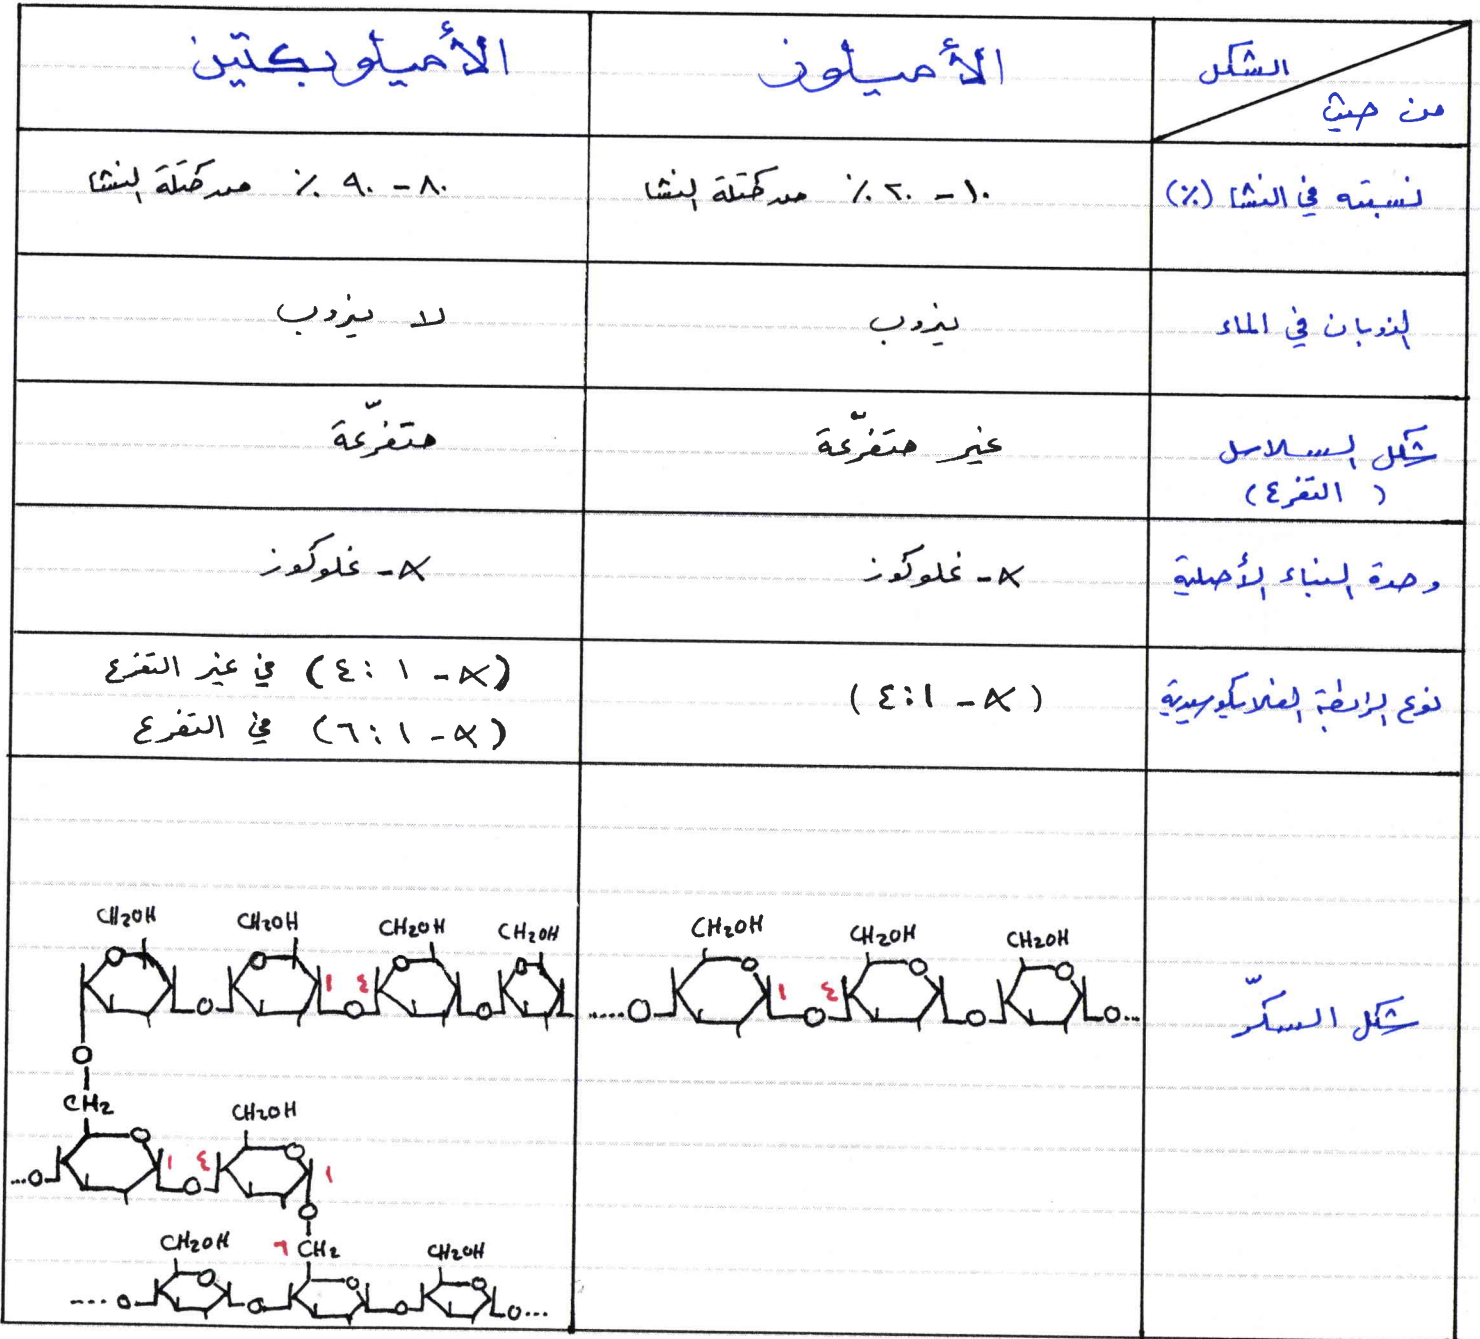 الشكل
من حيث
الأميلوز
الأميلوبكتين
نسبته في النشا (٪)
١٠ - ٢٠ ٪ من كتلة النشا
٨٠ - ٩٠ ٪ من كتلة النشا
الذوبان في الماء
يذوب
لا يذوب
شكل السلاسل
(التفرع)
غير متفرّعة
متفرّعة
وحدة البناء الأصلية
∝- غلوكوز
∝- غلوكوز
نوع الرابطة الغلايكوسيدية
(∝ - ١:٤)
(∝ - ١ :٤) في غير التفرع
(∝ - ١ :٦) في التفرع
شكل السكّر
CH2OH CH2OH CH2OH
١ ٤
.....O O O O...
CH2OH CH2OH CH2OH CH2OH
O O O O
١ ٤
O O O
O
CH2 CH2OH
O O
١ ٤ ١
...O O
O
CH2OH ٦ CH2 CH2OH
O O O
....O O O O...